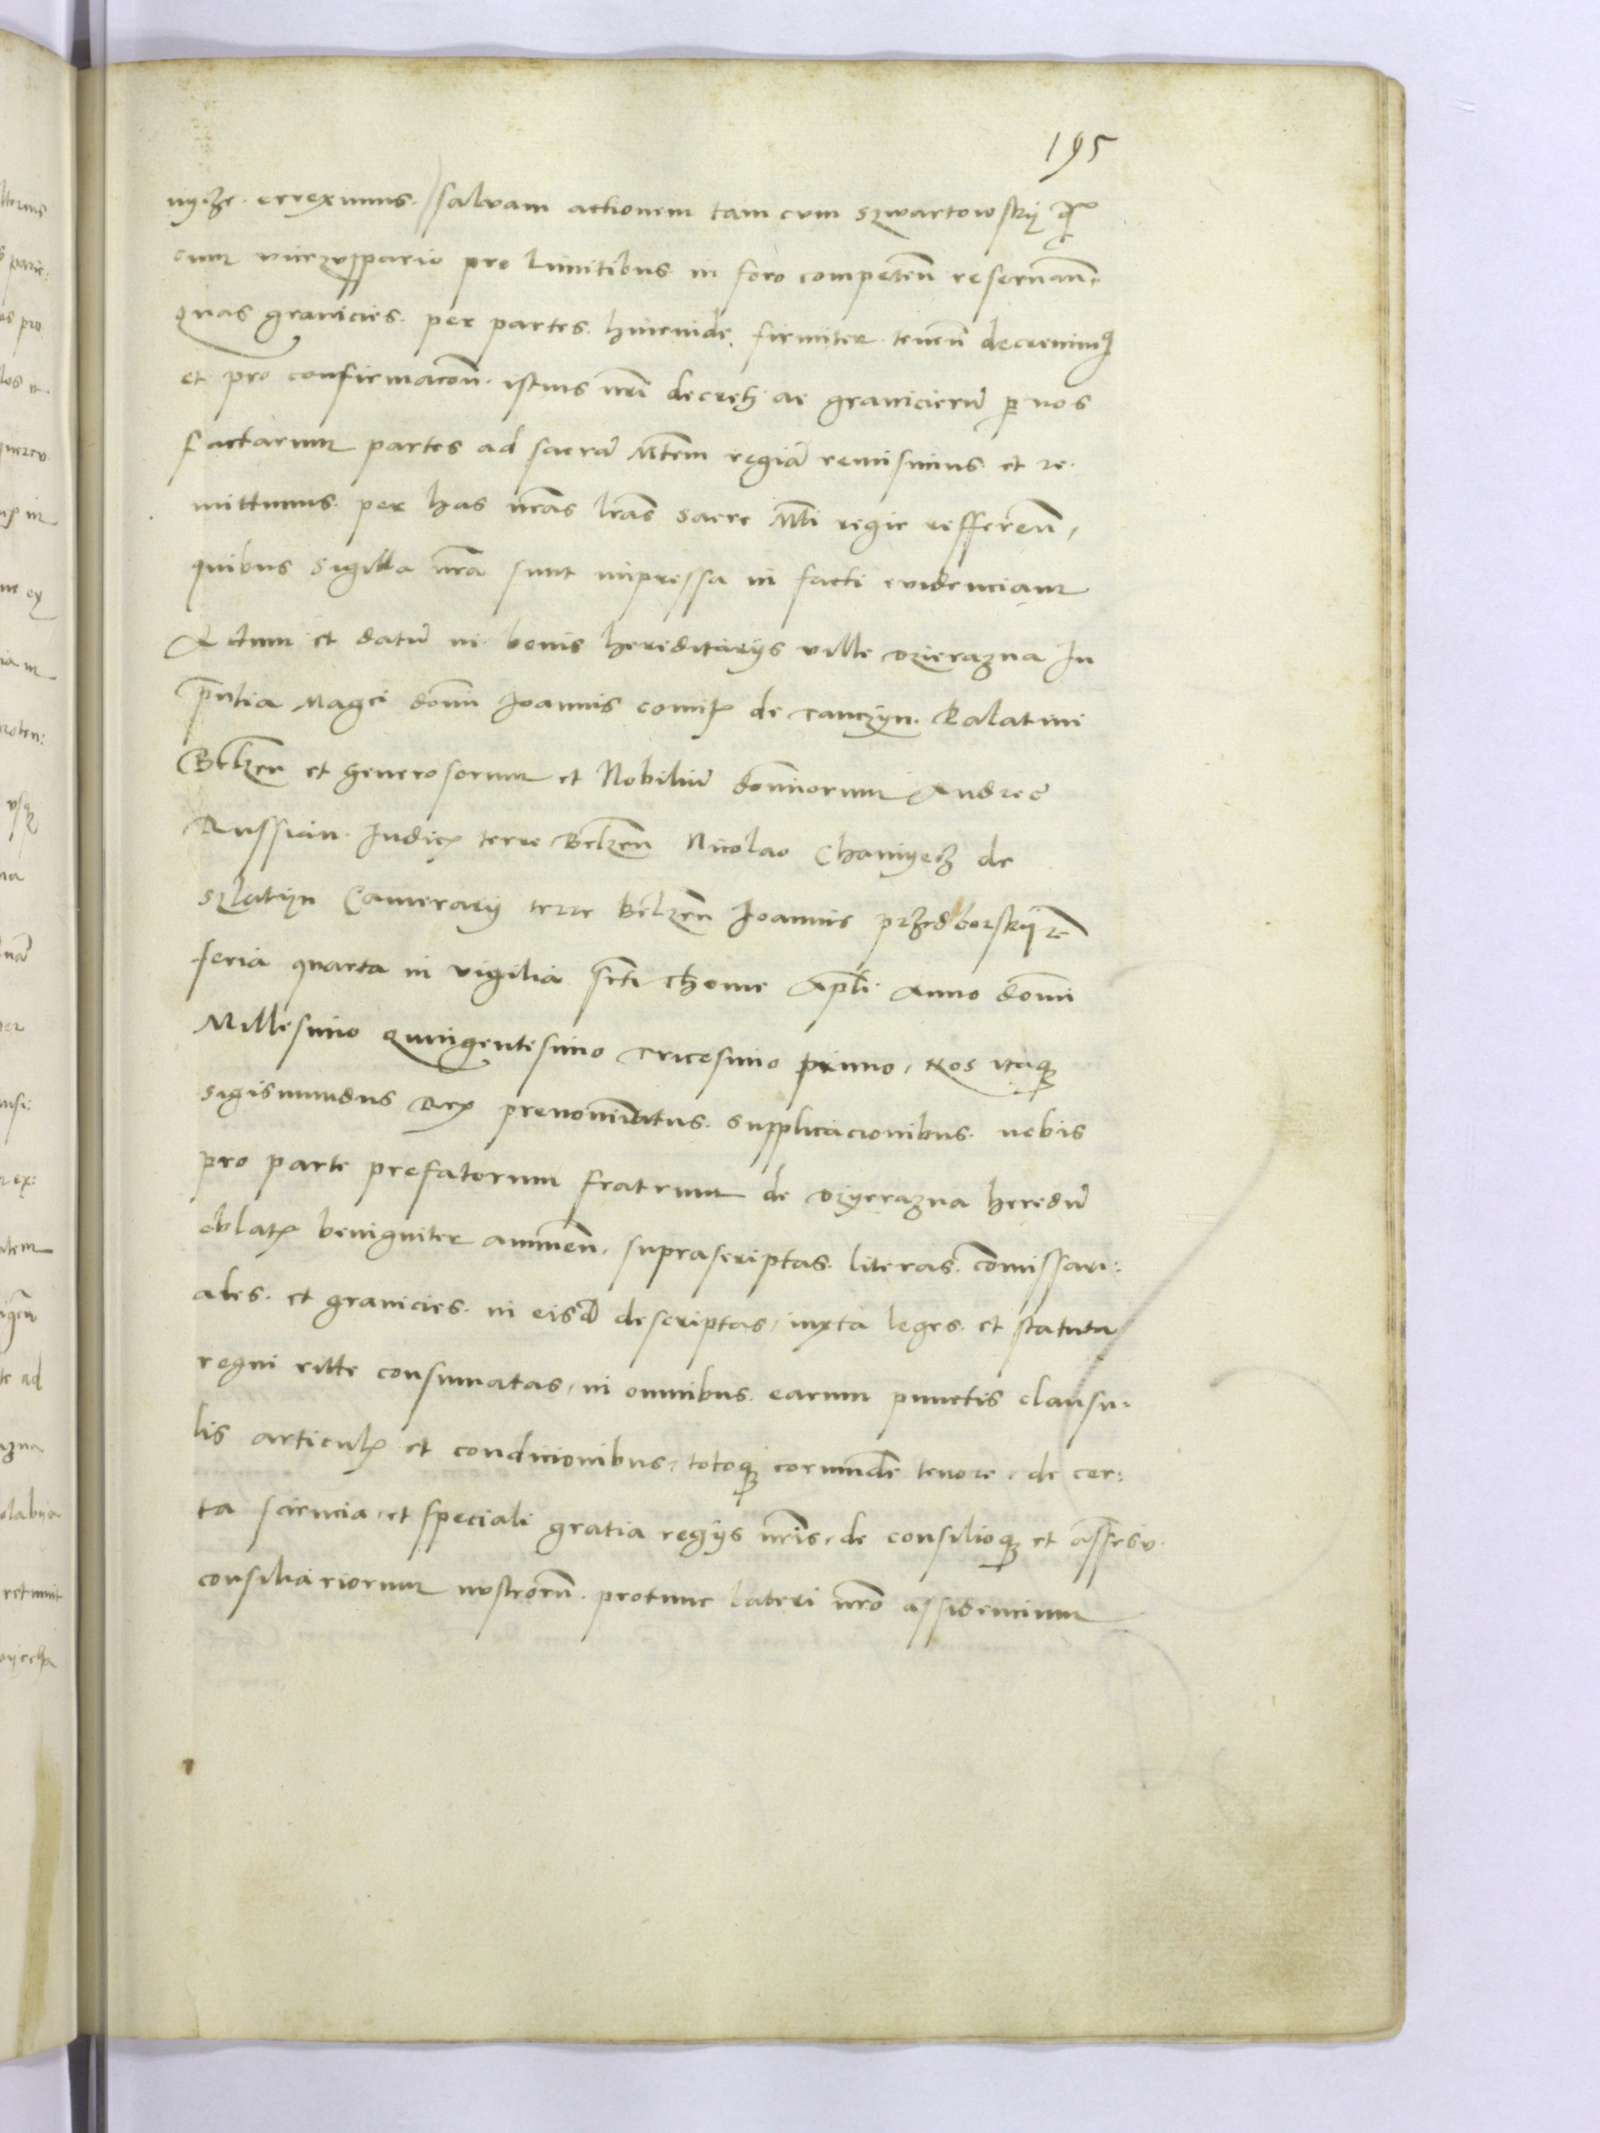 195
erreximus. salvam actionem tam cum szwartowskij
cum pro limitibus in foro competen̄ reservan̄.
quas granicies. per partes. hincinde. firmiter tenen̄ decrevim9
et pro confirmacōn. istius nr̄i decreti ac granicierū p nos
factarum partes ad sacrā Mtem regiā remisimus et re.
mittimus. per has nr̄as lr̄as sacre Mti regie refferen̄,
quibus sigilla nr̄a sunt impressa in facti evidenciam
Actum et datū in bonis hereditarijs ville ozierazna In
p̄ntia Magci dom̄i Joannis comit. de tanczyn. Palatini
Belzen̄ et generosorum et Nobiliū dom̄inorum Andree
Russian. Iudic. terre Belzen̄ Nicolao Chamyecz de
szlatijn Camerarij terre belzen̄ Joannis przedborskij
feria quarta in vigilia sc̄ti Thome Apl̄i. Anno dom̄i
Millesimo Quingentesimo tricesimo primo, Nos itaq3
Sigismundus Rex prenom̄iatus. supplicacionibus. nobis
pro parte prefatorum fratrum de ozyerazna heredū
oblat. benigniter annuen̄, suprascriptas. literas. com̄issari:
ales. et granicies. in eisd̄ descriptas, iuxta leges. et statuta
regni ritte consumatas, in omnibus. earum punctis clausu.
lis articul. et condicionibus, totoq3 eorundē tenore, de cer:
ta sciencia, et speciali gratia regijs nr̄is, de consilioq3 et assesu.
consiliariorum nostrorū. protunc lateri nr̄o assidencium